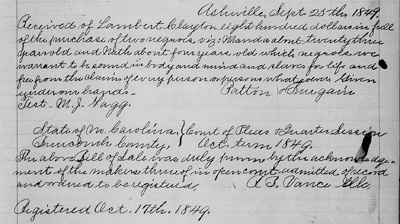 Asheville, Sept 25th 1849.
Received of Lambert Clayton eight hundred dollars in full
of the purchase of two negroes, viz: Wanda about twenty three
years old and Nath about four years old which negroes we
warrant to be sound in body and mind and slaves for life and
free from the claim of every person or persons whatsoever. Given
under our hands. Patton &
Test - M. J. Fagg.
State of No Carolina } Court of Pleas & Quarter Session
Buncombe County } Oct. term 1849.
The above bill of Sale was duly proven by the acknowledge-
ment of the makers thereof in open court admitted of record
and ordered to be registered. Vance Clk.
Registered Oct. 17th. 1849.